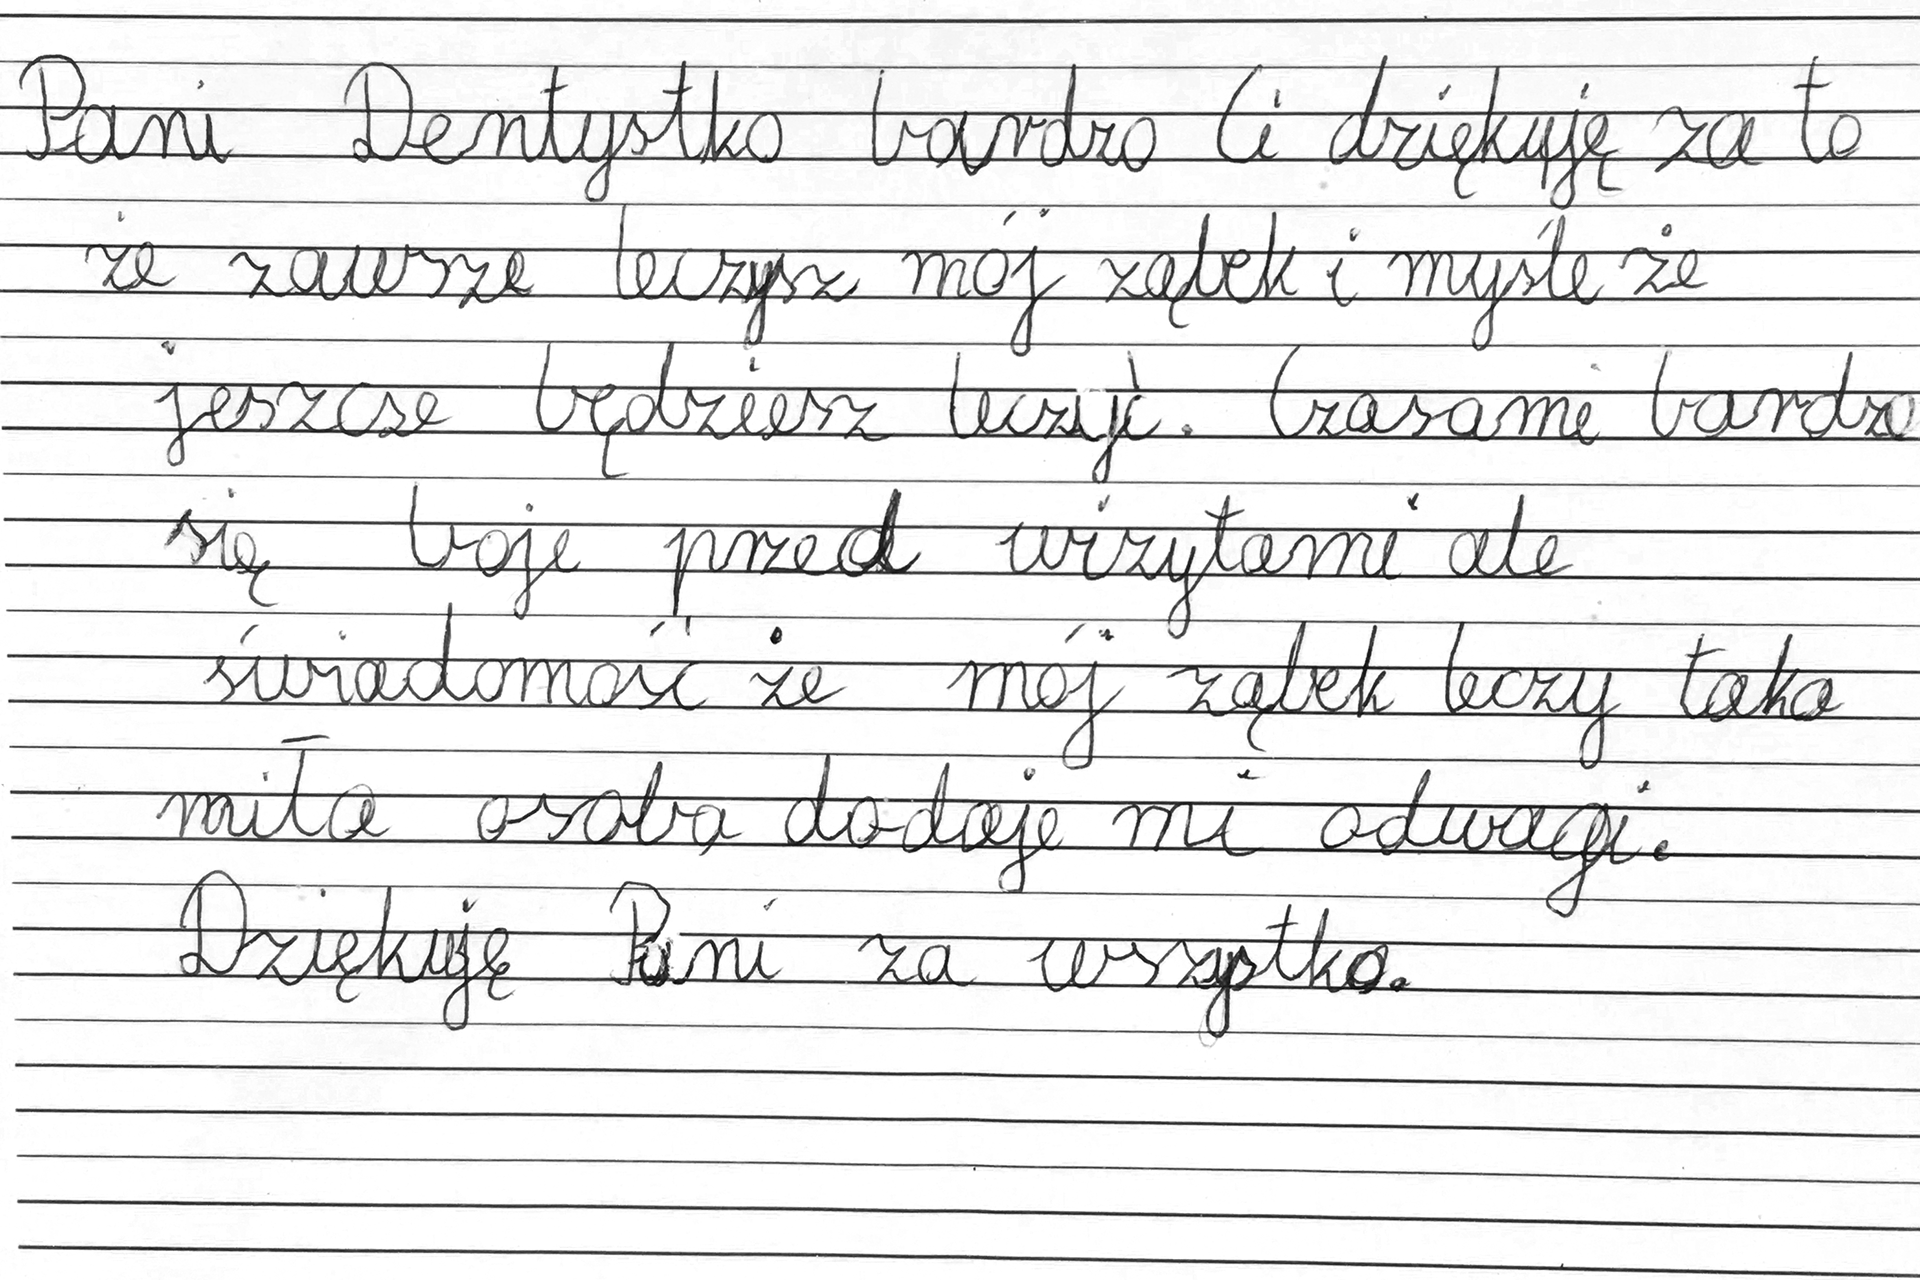 Pani Dentystko bardzo Ci dziękuję za to
że zawsze leczysz mój ząbek i myśle że
jeszcse będziesz leczyć. Czasami bardzo
się boje przed wizytami ale
świadomość że mój ząbek leczy taka
miła osoba dodaje mi odwagi.
Dziękuję Pani za wszystko.